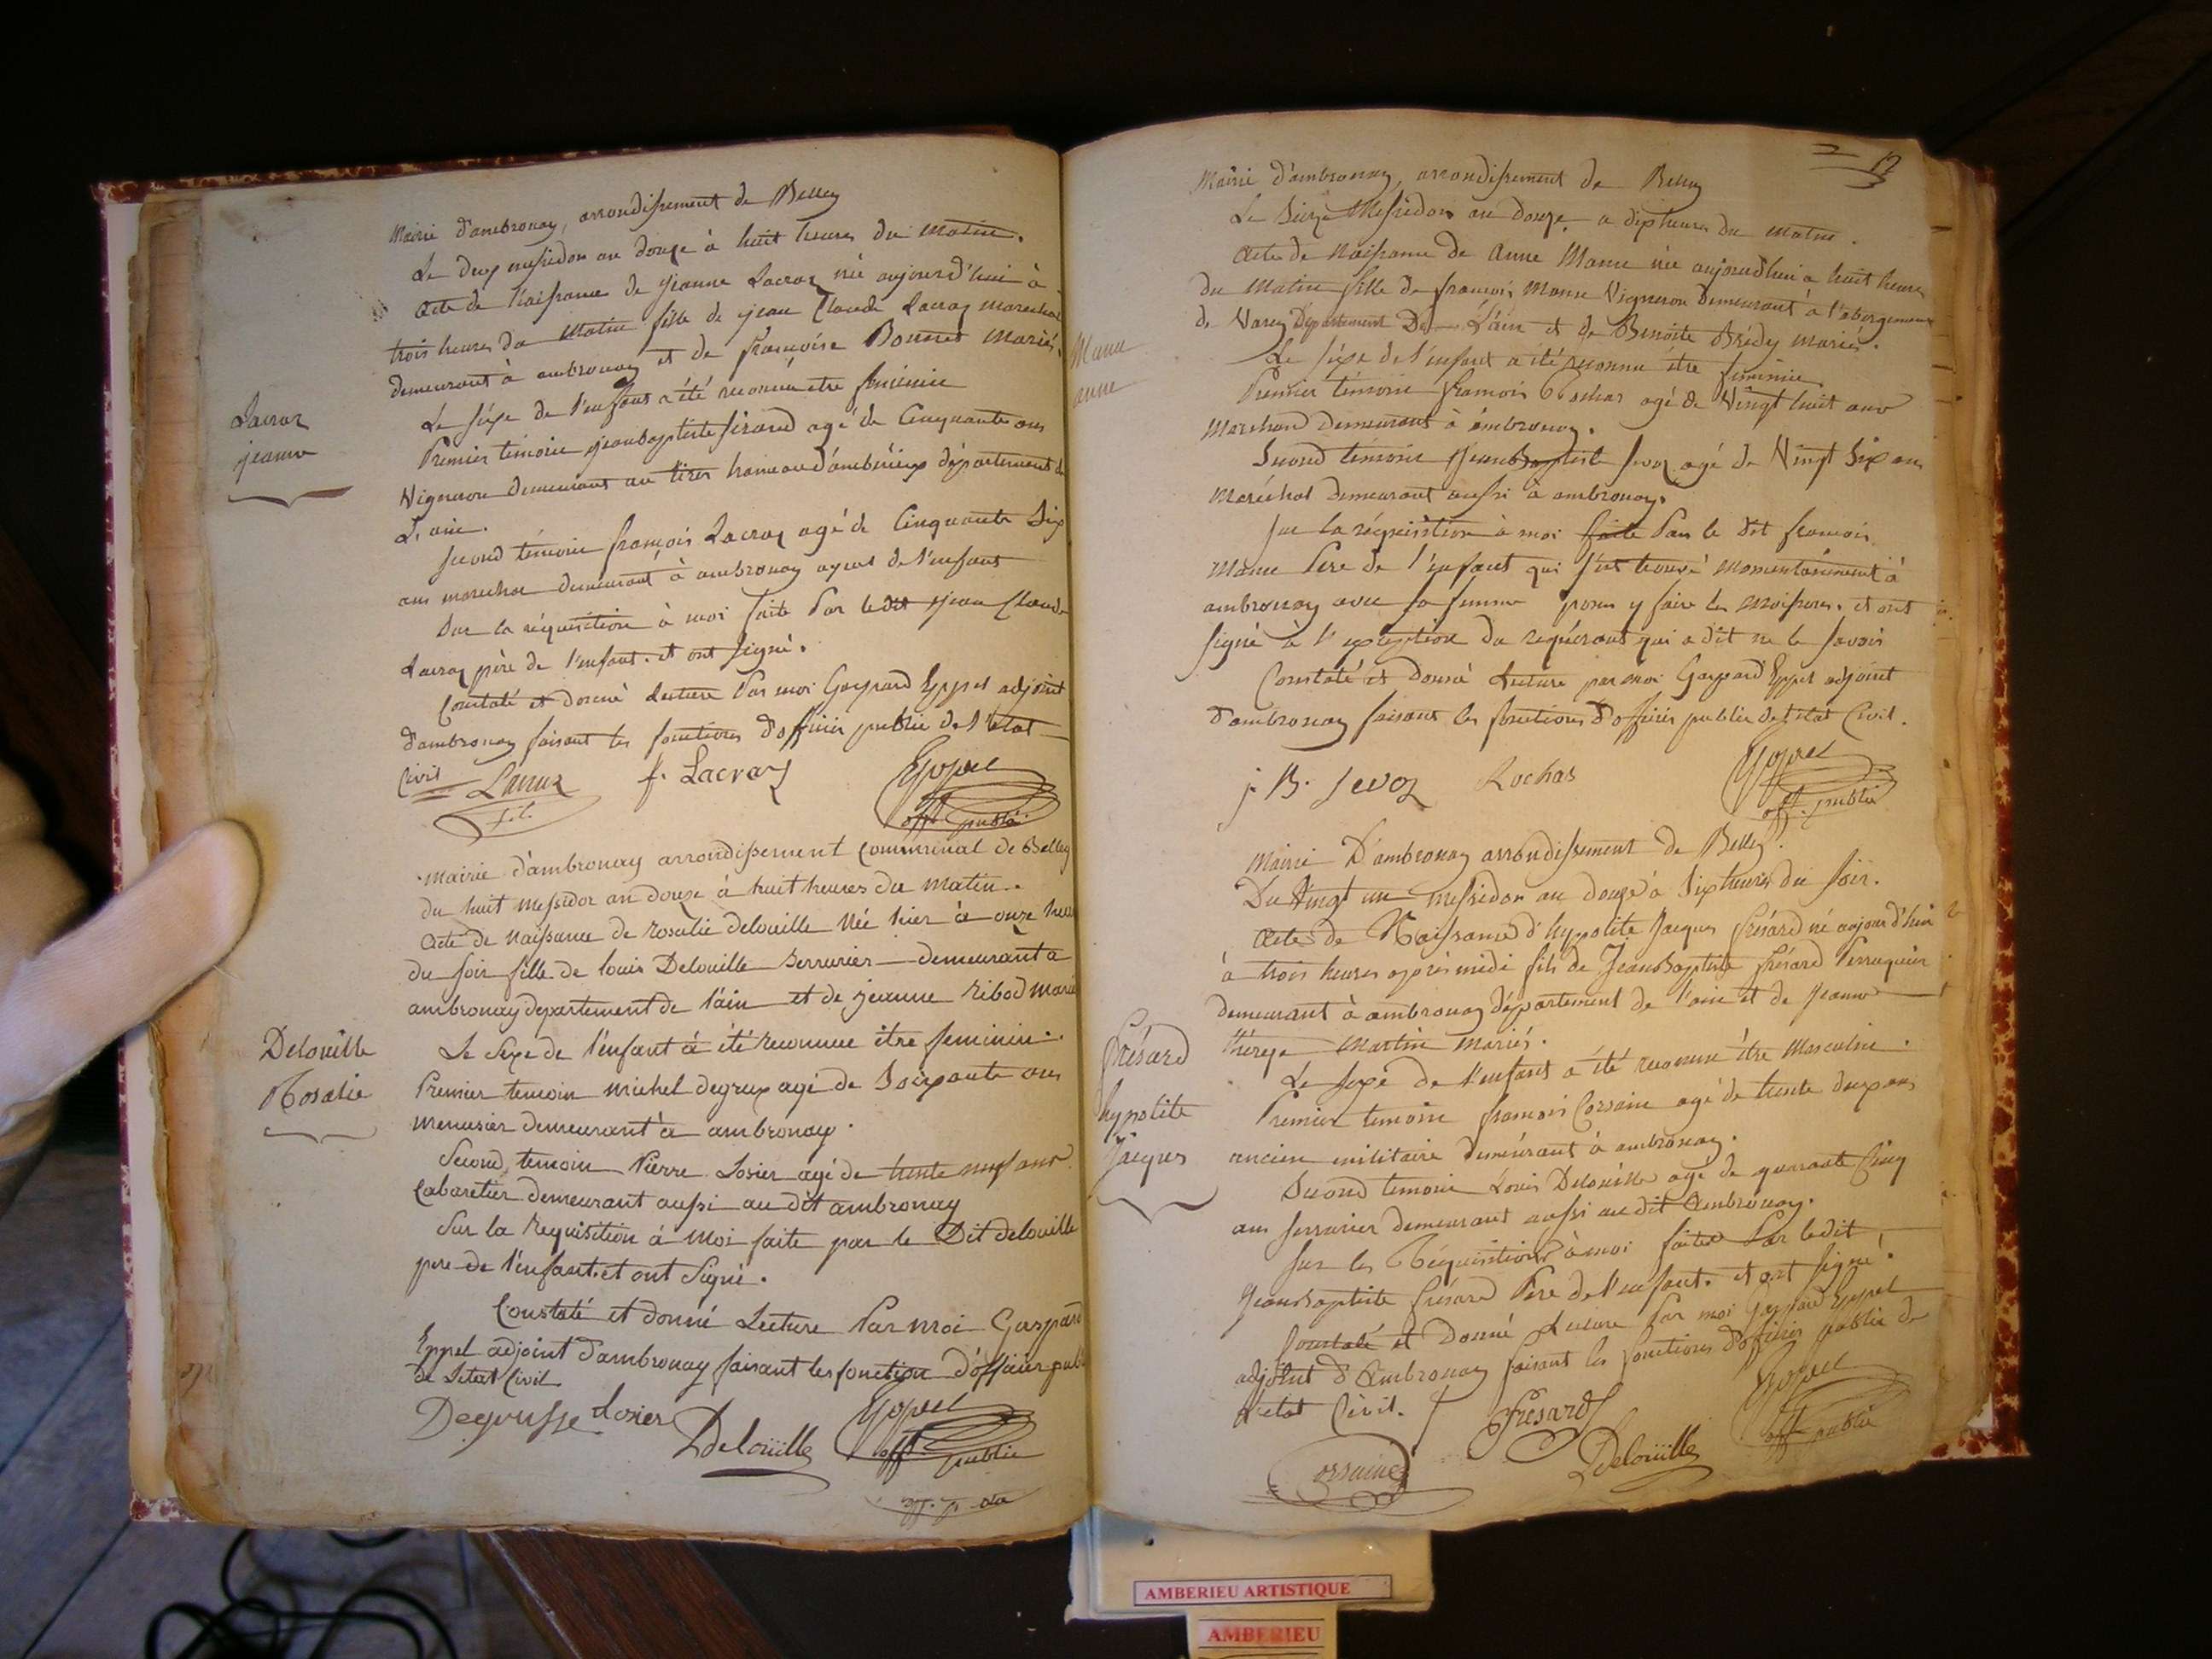 Mairie d'ambronay, arrondissement de Belley
Le deux messidor an douze à huit heures du matin.
Acte de Naissance de jeanne Lacroz née aujourd'hui à
trois heures du matin fille de jean Claude Lacroz marechal
demeurant à ambronay et de françoise Bonnet mariés.
Le sexe de l'enfant a été reconnu etre feminin
Lacroz
jeanne
Premier témoin jeanbaptiste girard agé de Cinquante ans
Vigneron demeurant au tiret hameau d'ambérieux département de
L'ain.
Second témoin françois Lacroz agé de Cinquante Six
ans marechal demeurant à ambronay ayeul de l'enfant
Sur la réquisition à moi faite Par ledit jean Claude
Lacroz père de l'enfant. et ont signé.
Constaté et donné Lecture Par moi Gaspard Eyppel adjoint
d'ambronay faisant les fonctions d'officier public de l'etat
Civil
Lacroz fils
f. Lacroz
Eyppel
off. public
Mairie d'ambronay arrondissement Communal de Belley
du huit Messidor an douze à huit heures du matin.
Acte de naissance de rosalie delouille Née hier à onze heures
du soir fille de louis Delouille Serrurier demeurant a
ambronay departement de l'ain et de jeanne Ribod mariés
Delouille
Rosalie
Le Sexe de l'enfant à été reconnue être feminin.
Premier temoin michel degrux agé de Soixante ans
menusier demeurant à ambronay.
Second temoin Pierre Losier agé de trente neuf ans
Cabaretier demeurant aussi au dit ambronay
Sur la Requisition à moi faite par le Dit delouille
pere de l'enfant. et ont Signé.
Constaté et donné Lecture Par moi Gaspard
Eyppel adjoint d'ambronay faisant les fonction d'officier public
de l'etat Civil
Losier
Deloüille
Eyppel
off. public
12
Mairie d'ambronay, arrondissement de Belley
Le Seize Messidor an douze, a dix heures du matin.
Acte de Naissance de Anne Manu née aujourdhui a huit heures
du Matin fille de françois Manu Vigneron demeurant à l'abergement
de Varey Département De L'ain et de Benoite Brédy mariés.
Manu
anne
Le sexe de l'enfant a été reconnu être feminin
Premier témoin françois Rochas agé de Vingt huit ans
Marchand demeurant à ambronay.
Second témoin Jean Baptiste Sevoz agé de Vingt Six ans
Maréchal demeurant aussi à ambronay.
Sur la réquisition à moi faite Par le dit françois
Manu Pere de l'enfant qui s'est trouvé momentanément à
ambronay avec sa femme pour y faire les moissons. et ont
signé à l'exception du requérant qui a dit ne le savoir
Constaté et Donné Lecture par moi Gaspard Eyppel adjoint
d'ambronay faisant les fonctions d'officier public de l'etat Civil.
j. B. Sevoz
Rochas
Eyppel
off. public
Mairie D'ambronay arrondissement de Belley.
Du Vingt un messidor an douze à Six heures du soir.
Acte de Naissance d'hypolite Jacques frésard né aujourd'hui
à trois heures après midi fils de Jean Baptiste frésard Perruquier
demeurant à ambronay département de l'ain et de Jeanne
thérèse Martin Mariés.
frésard
hypolite
Jacques
Le sexe de l'enfant a été reconnu être Masculin.
Premier temoin françois Corsain agé de trente deux ans
ancien militaire demeurant à ambronay.
Second temoin Louis Delouille agé de quarante Cinq
ans serrurier demeurant aussi au dit Ambronay.
Sur les Réquisitions à moi faites Par ledit
Jean Baptiste frésard Père de l'enfant. et ont signé.
Constaté et Donné Lecture Par moi Gaspard Eyppel
adjoint d'Ambronay faisant les fonctions d'officier public de
L'etat Civil.
Frésard
Corsain
Deloüille
Eyppel
off. public
AMBERIEU ARTISTIQUE
AMBERIEU